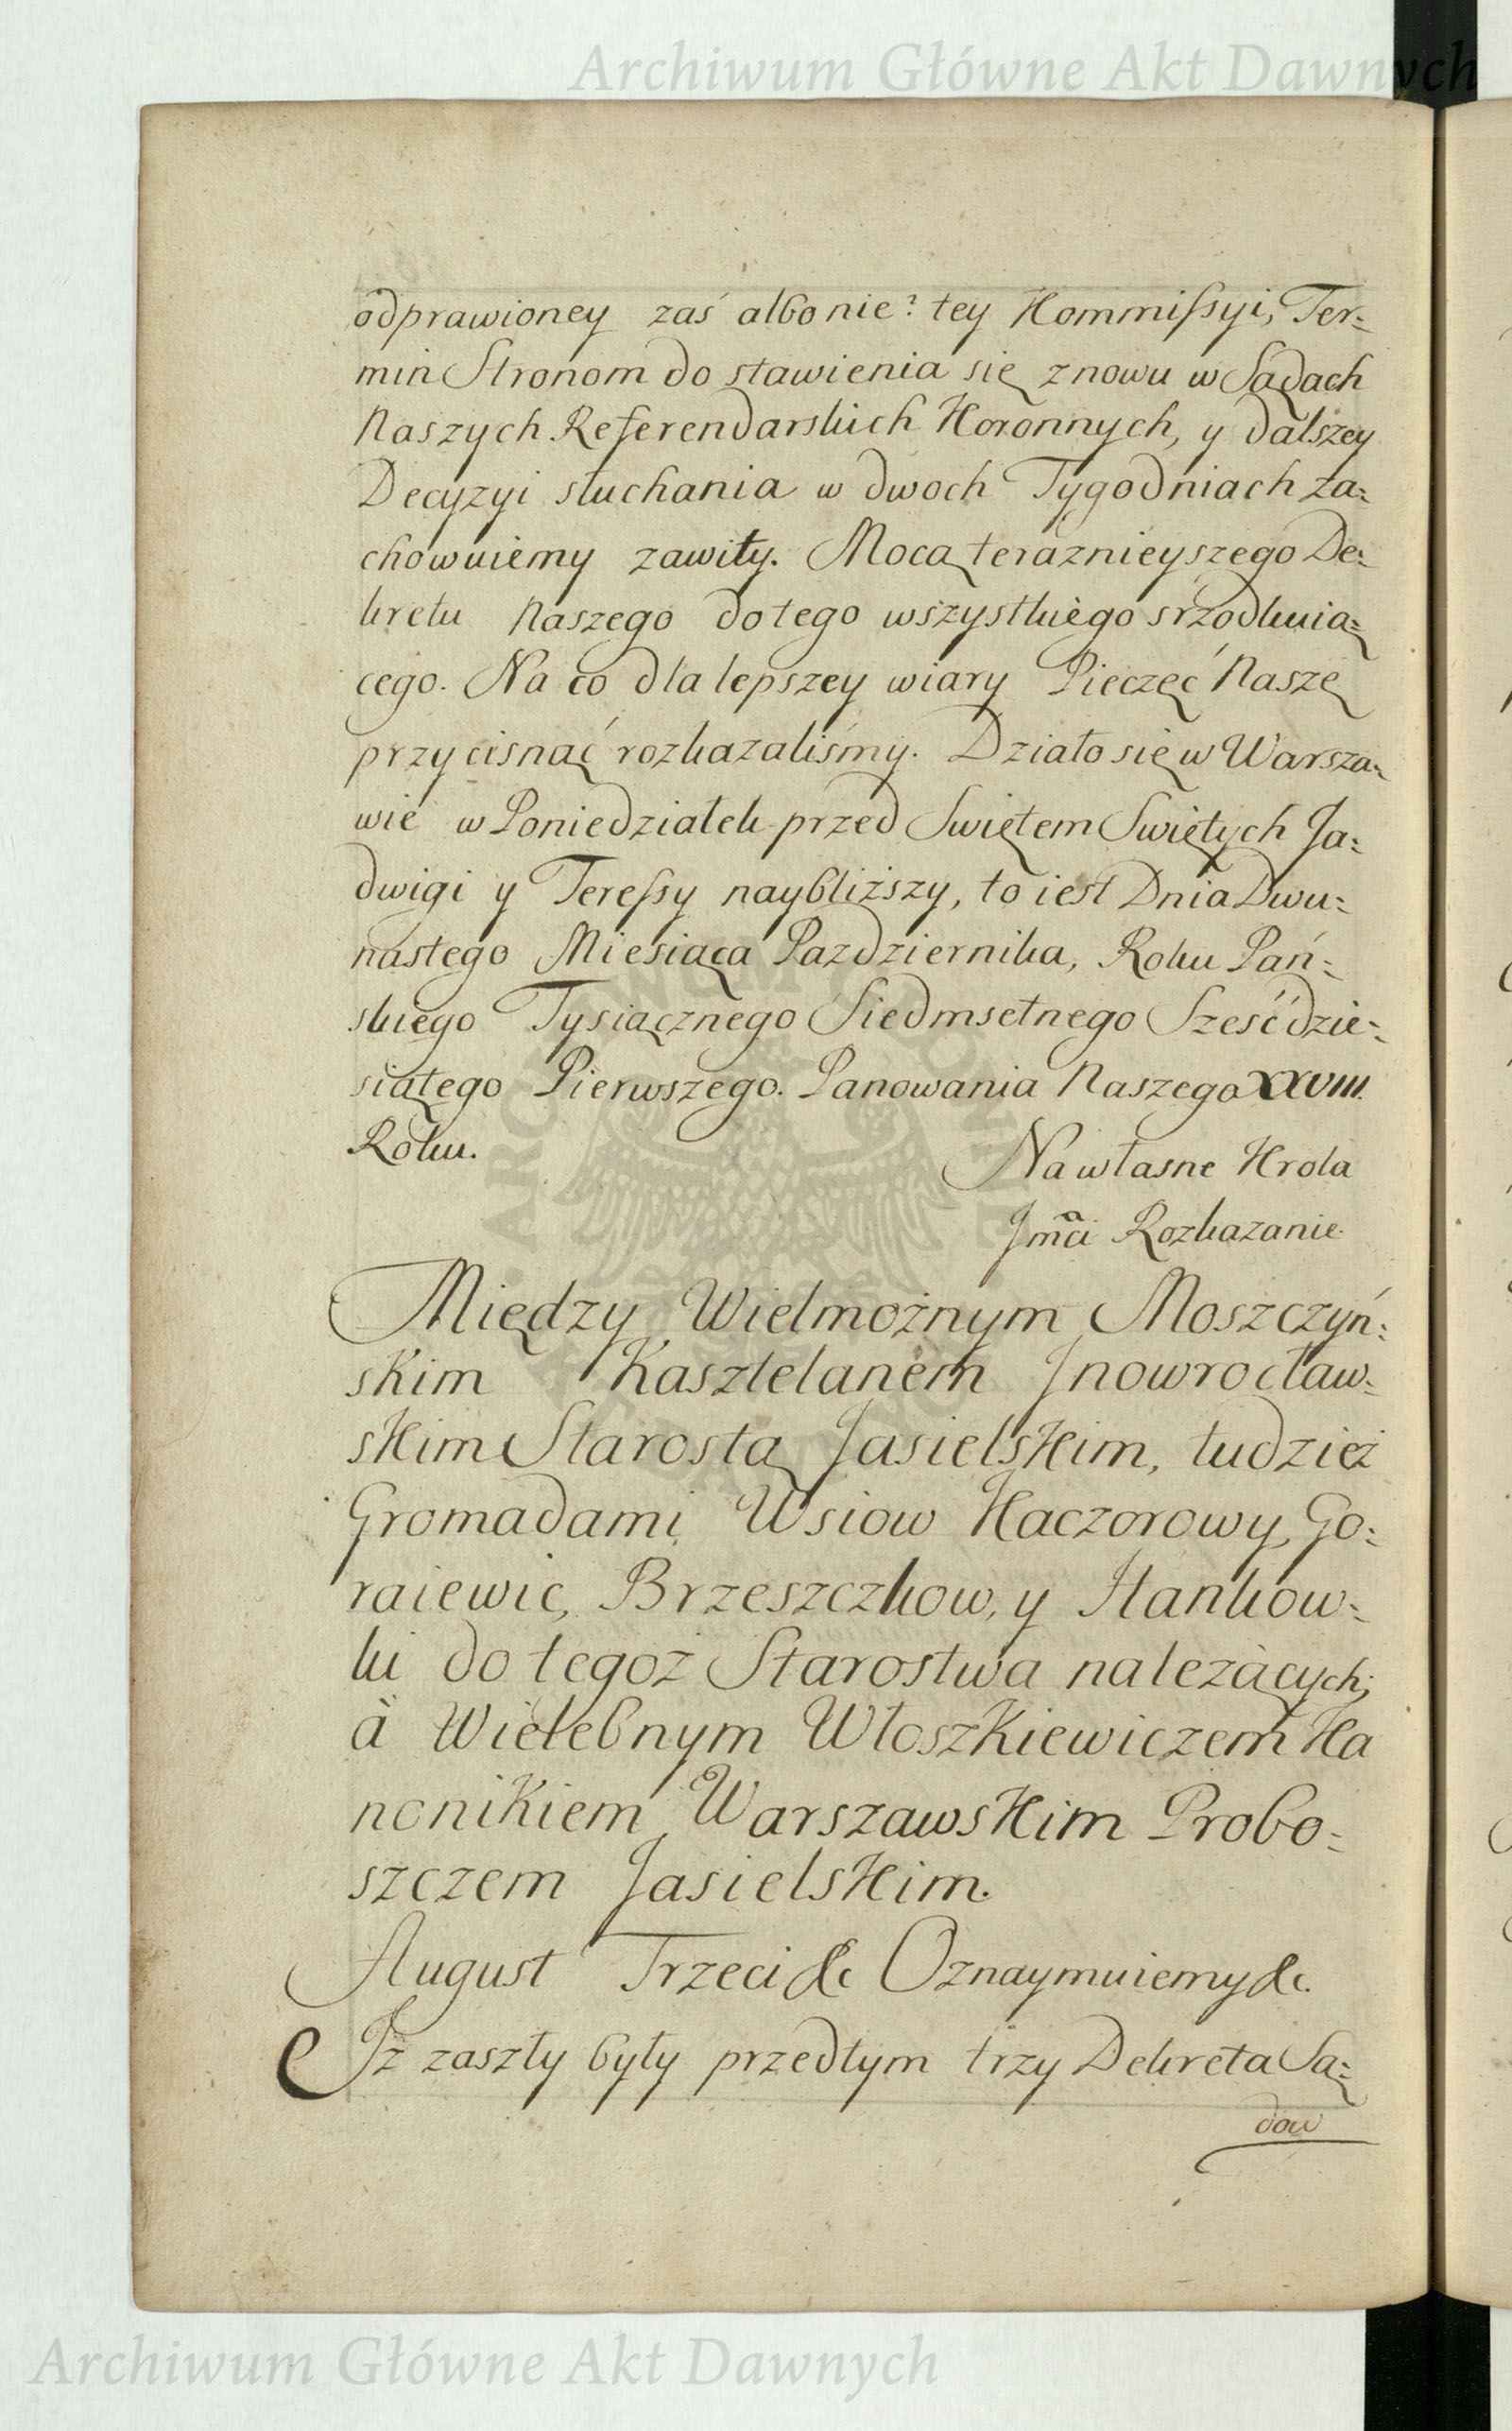 Archiwum Główne Akt Dawnych
odprawioney zaś albo nie? tey Kommissyi, Ter=
min Stronom do stawienia się znowu w Sądach
Naszych Referendarskich Koronnych, y dalszey
Decyzyi słuchania w dwoch Tygodniach za=
chowuiemy zawity. Mocą teraznieyszego De=
kretu Naszego do tego wszystkiego srzodkuią=
cego. Na co dla lepszey wiary Pieczęć Naszę
przycisnąć rozkazaliśmy. Działo się w Warsza=
wie w Poniedziałek przed Swiętem Swiętych Ja=
dwigi y Teressy naybliższy, to iest Dnia Dwu=
nastego Miesiąca Pazdziernika, Roku Pań=
skiego Tysiącznego Siedmsetnego Sześćdzie=
siątego Pierwszego. Panowania Naszego XXVIII.
Roku.
Na własne Krola
Jmci Rozkazanie.
Między Wielmożnym Moszczyń=
skim Kasztelanem Jnowrocław=
skim Starostą Jasielskim, tudzież
Gromadami Wsiow Kaczorowy, Go=
raiewic, Brzeszczkow, y Hankow=
ki do tegoż Starostwa należących;
à Wielebnym Włoszkiewiczem Ka
nonikiem Warszawskim Probo=
szczem Jasielskim.
August Trzeci &c Oznaymuiemy &c.
Iż zaszły były przedtym trzy Dekreta Są=
dow
Archiwum Główne Akt Dawnych